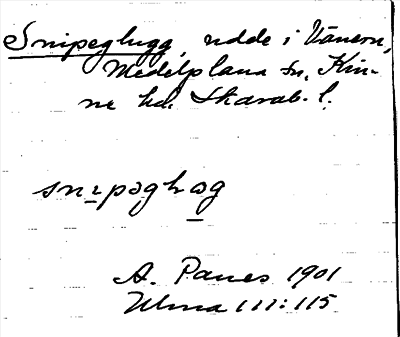 Snipeghugg, udde i Vänern,
Medelplana sn, Kin-
ne hd. Skarab. l.
snɪpəghəg
A. Panes 1901
Ulma 111:115